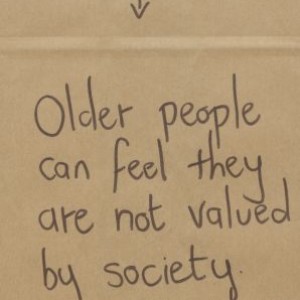 Older people
can feel they
are not valued
by society.